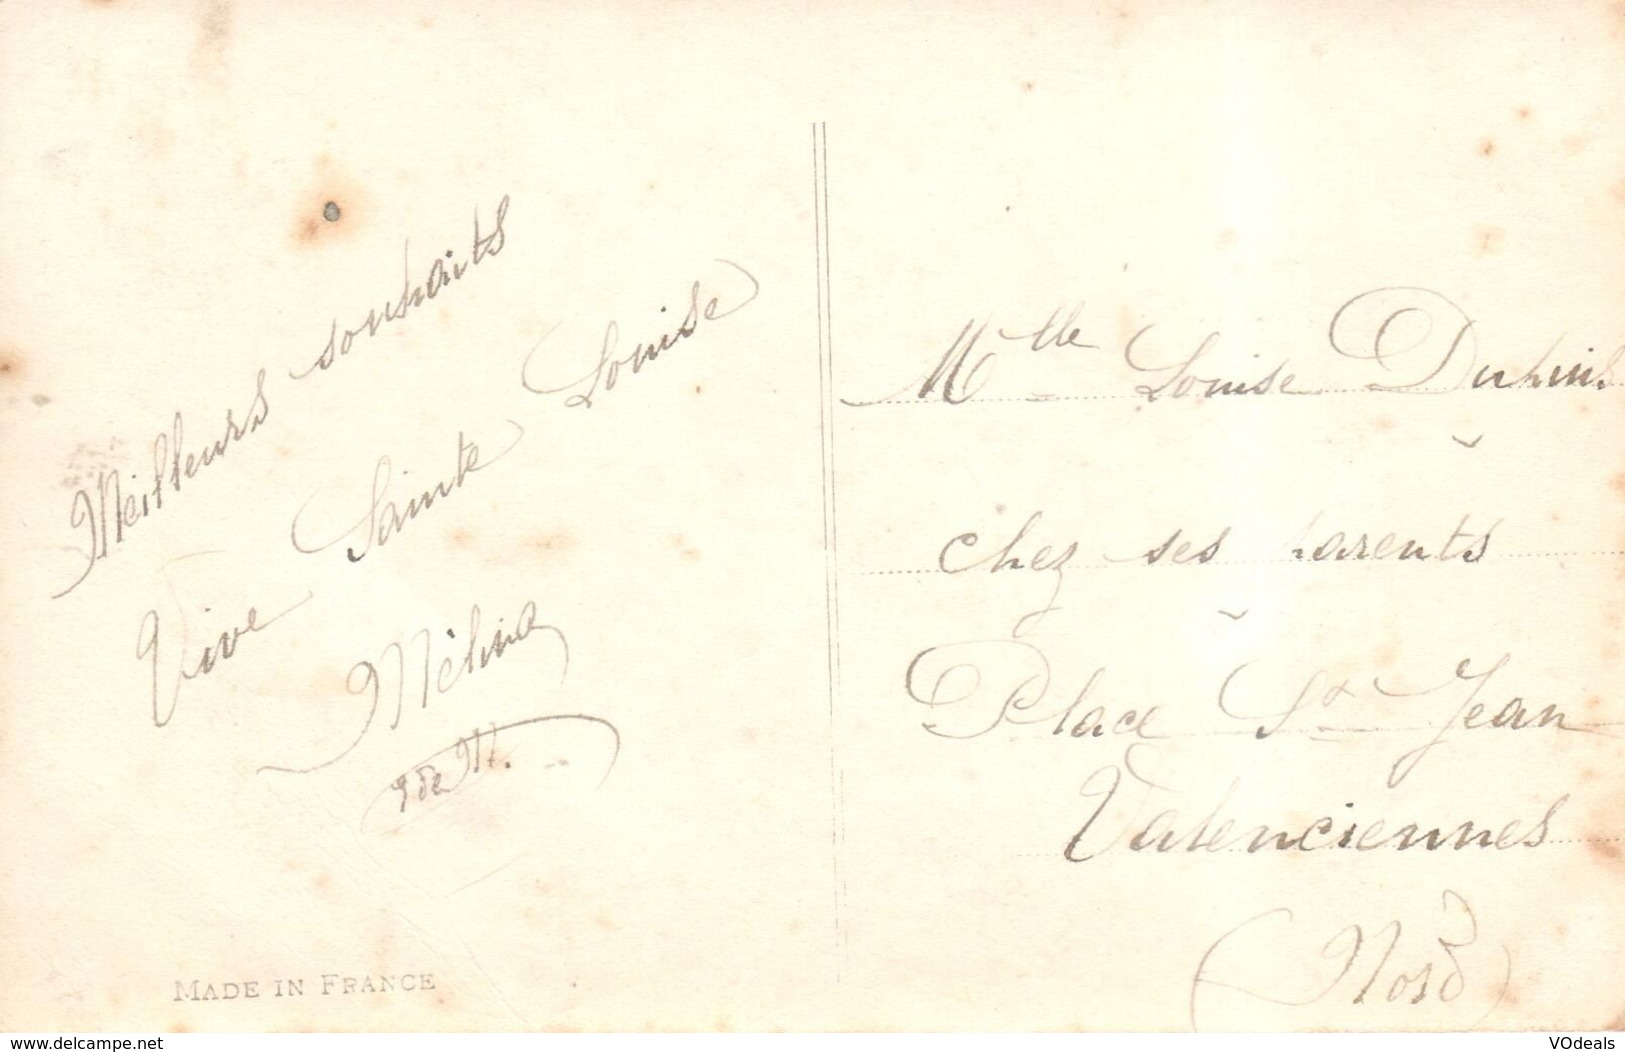 Meilleurs souhaits
Vive Sainte Louise
Mélina
MADE IN FRANCE
Mlle Louise Duhuis
chez ses parents
Place St Jean
Valenciennes
(Nord)
www.delcampe.net
VOdeals